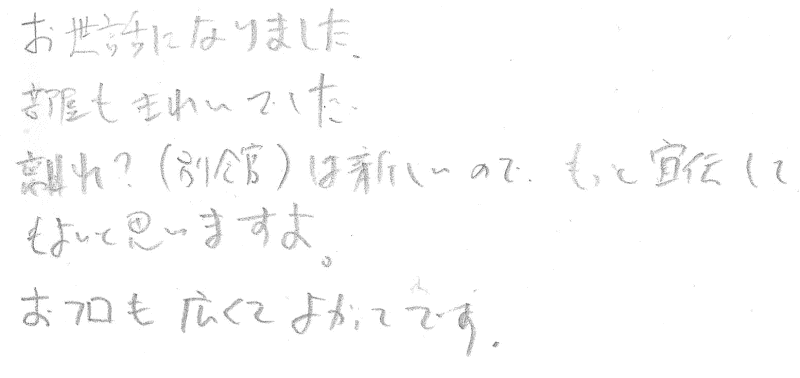 お世話になりました.
部屋もきれいでした.
離れ?(別館)は新しいので.もっと宣伝して
もよいと思いますよ。
お風呂も広くてよかったです.